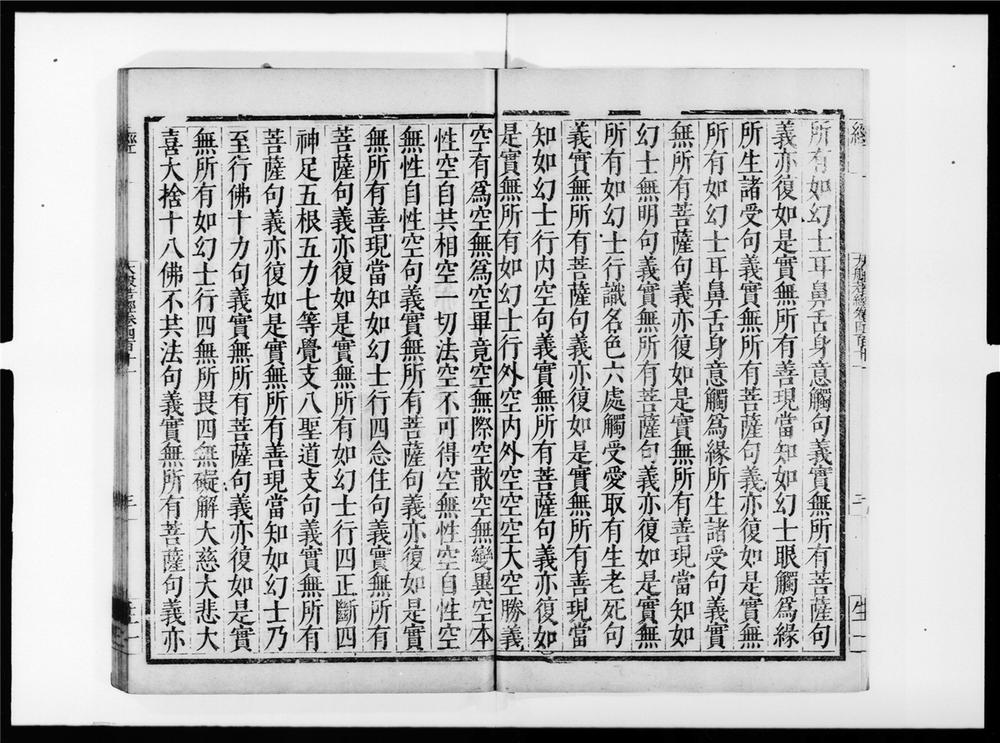 所有如幻士耳鼻舌身意觸句義實無所有菩薩句
義亦復如是實無所有善現當知如幻士眼觸爲緣
所生諸受句義實無所有菩薩句義亦復如是實無
所有如幻士耳鼻舌身意觸爲緣所生諸受句義實
無所有菩薩句義亦復如是實無所有善現當知如
幻士無明句義實無所有菩薩句義亦復如是實無
所有如幻士行識名色六處觸受愛取有生老死句
義實無所有菩薩句義亦復如是實無所有善現當
知如幻士行内空句義實無所有菩薩句義亦復如
是實無所有如幻士行外空内外空空空大空勝義
空有爲空無爲空畢竟空無際空散空無變異空本
性空自共相空一切法空不可得空無性空自性空
無性自性空句義實無所有菩薩句義亦復如是實
無所有善現當知如幻士行四念住句義實無所有
菩薩句義亦復如是實無所有如幻士行四正斷四
神足五根五力七等覺支八聖道支句義實無所有
菩薩句義亦復如是實無所有善現當知如幻士乃
至行佛十力句義實無所有菩薩句義亦復如是實
無所有如幻士行四無所畏四無礙解大慈大悲大
喜大捨十八佛不共法句義實無所有菩薩句義亦